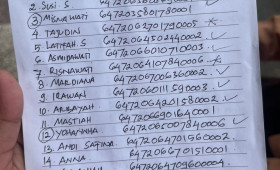 2. SUSI S.
3 MISNAWATI 6472035801780001
4 TAJUDIN 6472062701790005
5 LATIFAH S. 6472064502440002
6. ASMIDAWATI 6472066010710003
7 RISNAWATI 6472064107840006
8 MARDIANA 6472067006360002
9 IRAWAN 647206011159 0003
10. ARBAYAH 6472064201580002
11 MASTIAH 6472066901640001
12 YOHANNA 6472065007840006
13. ANDI 6472064701560002
14 ANNA 6472066701510001
6472064709600004